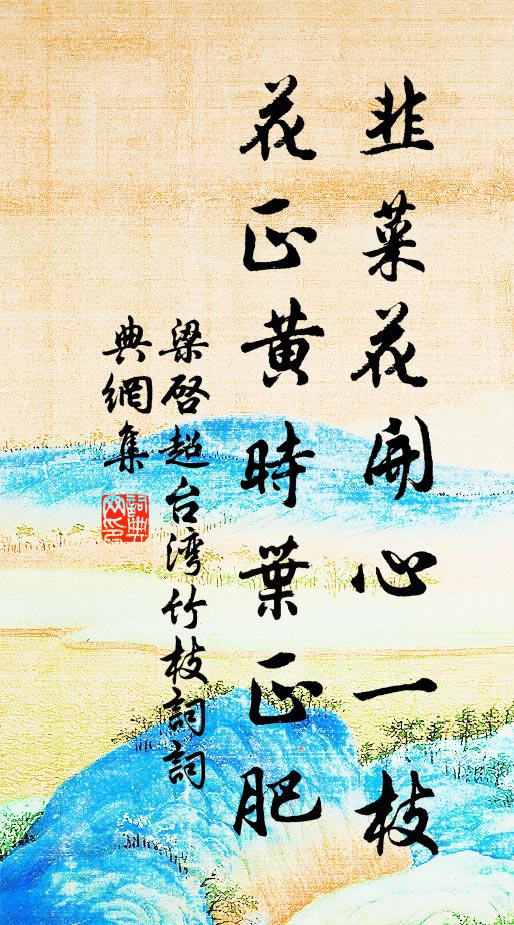 韭菜花開心一枝
花正黃時葉正肥
梁启超台湾竹枝詞詞
典網集